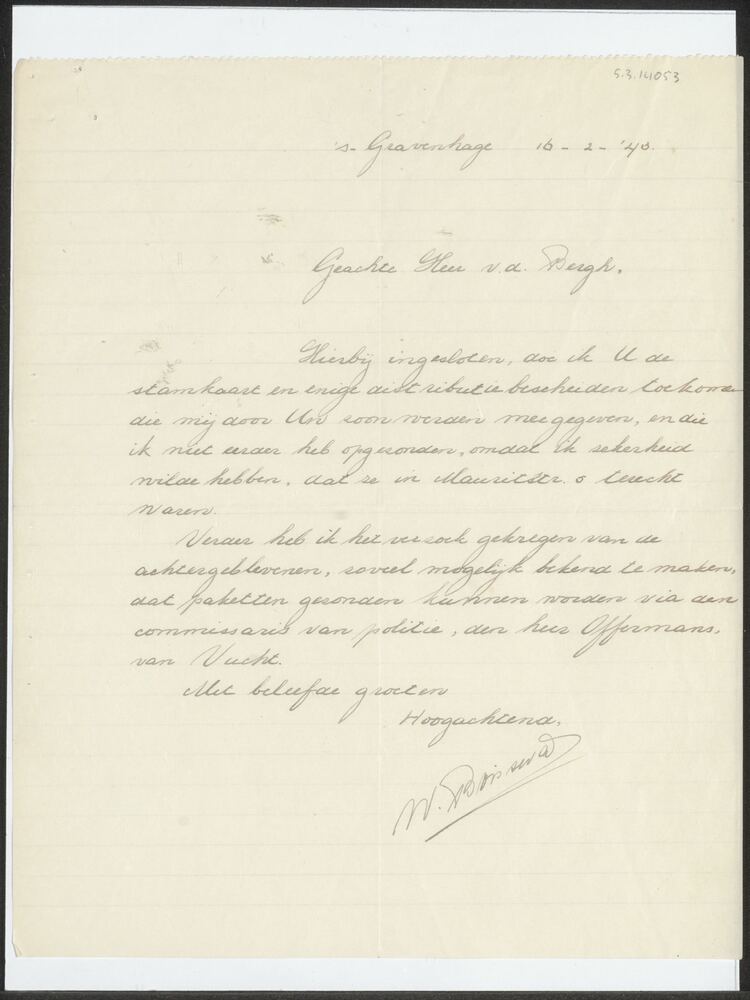 5.3.14053
's-Gravenhage 16-2-'43.
Geachte Heer v.d. Bergh.
Hierbij ingesloten, doe ik U de
stamkaart en enige distributie bescheiden toekomen
die mij door Uw zoon werden meegegeven, en die
ik niet eerder heb opgezonden, omdat ik zekerheid
wilde hebben, dat ze in Mauritsstr. 0 terecht
waren.
Verder heb ik het verzoek gekregen van de
achtergeblevenen, zoveel mogelijk bekend te maken,
dat paketten gezonden kunnen worden via den
commissaris van politie, den heer Offermans,
van Vucht.
Met beleefde groeten
Hoogachtend,
W. Boissevain